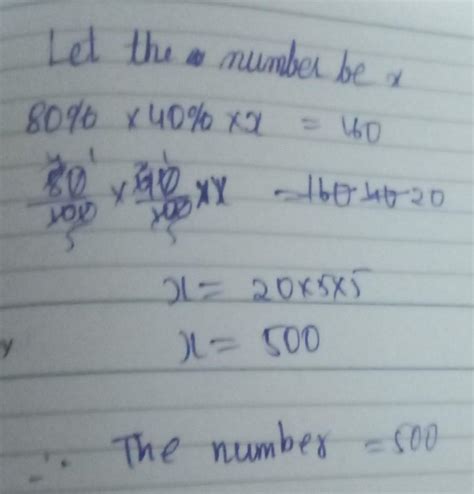 Let the number be x
80% × 40% × x = 160
80/100 × 40/100 × x = 160 40 20
x = 20×5×5
x = 500
∴ The number = 500